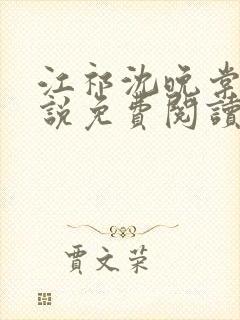 江祁沈晚棠
說免費閱讀
賈文荣